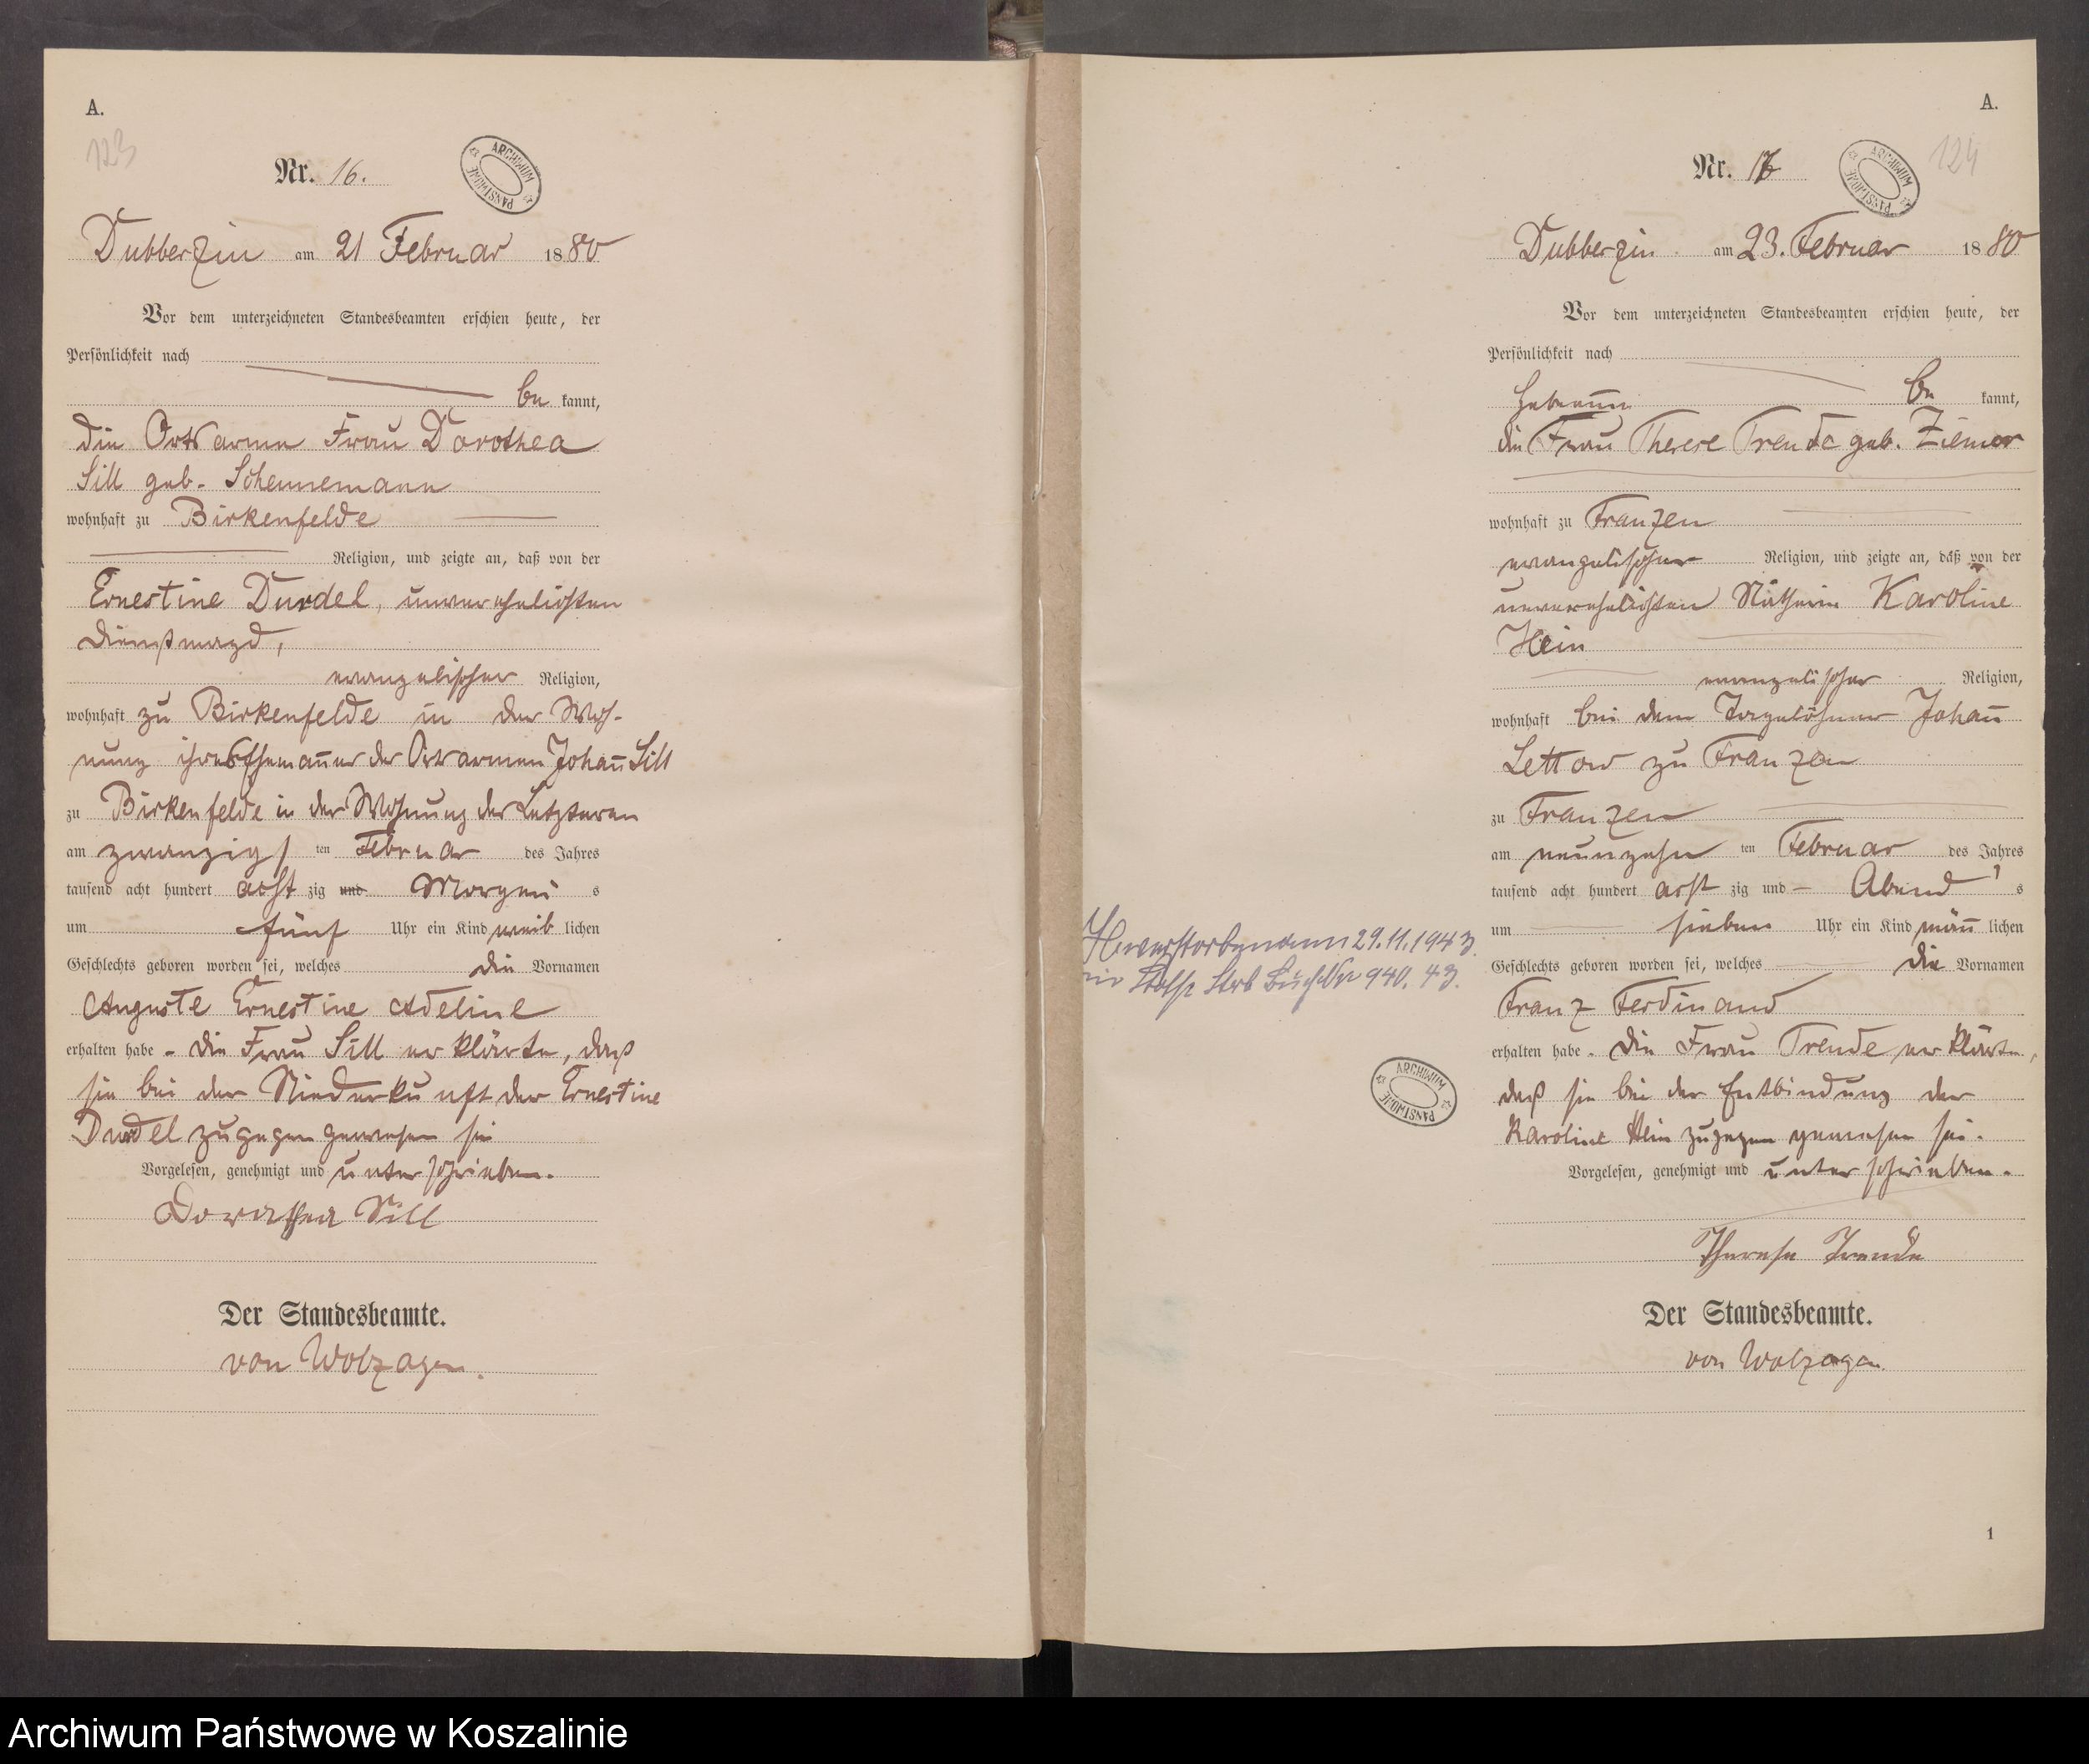 A.
123
Nr. 16.
ARCHIWUM PAŃSTWOWE
Dubberzin am 21 Februar 1880
Vor dem unterzeichneten Standesbeamten erschien heute, der
Persönlichkeit nach
be kannt,
die Ortsarme Frau Dorothea
Sill geb. Schennemann
wohnhaft zu Birkenfelde
Religion, und zeigte an, daß von der
Ernestine Durdel, unverehelichten
Dienstmagd,
evangelischer Religion,
wohnhaft zu Birkenfelde in der Woh-
nung ihres Ehemannes des Ortsarmen Johann Sill
zu Birkenfelde in der Wohnung der Letzteren
am zwanzigs ten Februar des Jahres
tausend acht hundert acht zig und Morgens s
um fünf Uhr ein Kind weib lichen
Geschlechts geboren worden sei, welches die Vornamen
Auguste Ernestine Adeline
erhalten habe. Die Frau Sill erklärte, daß
sie bei der Niederkunft der Ernestine
Durdel zugegen gewesen sei
Vorgelesen, genehmigt und unterschrieben.
Dorathea Sill
Der Standesbeamte.
von Wolzogen.
A.
124
Nr. 17
ARCHIWUM PAŃSTWOWE
Dubberzin am 23. Februar 1880
Vor dem unterzeichneten Standesbeamten erschien heute, der
Persönlichkeit nach
Hebamme be kannt,
die Frau Therese Trende geb. Ziemer
wohnhaft zu Franzen
evangelischer Religion, und zeigte an, daß von der
unverehelichten Näherin Karoline
Hein
evangelischer Religion,
wohnhaft bei dem Tagelöhner Johann
Lettow zu Franzen
zu Franzen
am neunzehn ten Februar des Jahres
tausend acht hundert acht zig und – Abend s
um sieben Uhr ein Kind männ lichen
Geschlechts geboren worden sei, welches die Vornamen
Franz Ferdinand
erhalten habe. Die Frau Trende erklärte,
daß sie bei der Entbindung der
Karoline Hein zugegen gewesen sei.
Vorgelesen, genehmigt und unterschrieben.
Therese Trende
Der Standesbeamte.
von Wolzogen.
1
verstorben am 29.11.1943
in Stolp Strb Buch Nr 940.43.
ARCHIWUM PAŃSTWOWE
Archiwum Państwowe w Koszalinie